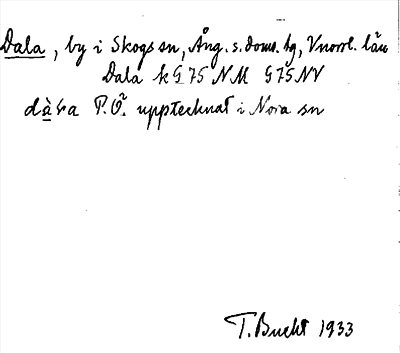 Dala, by i Skogs sn, Ång. s. doms. hg, Vnorrl. län
Dala k G 75 NM G75NV
dàʟa P.Ö. upptecknat i Nora sn
T. Bucht 1933